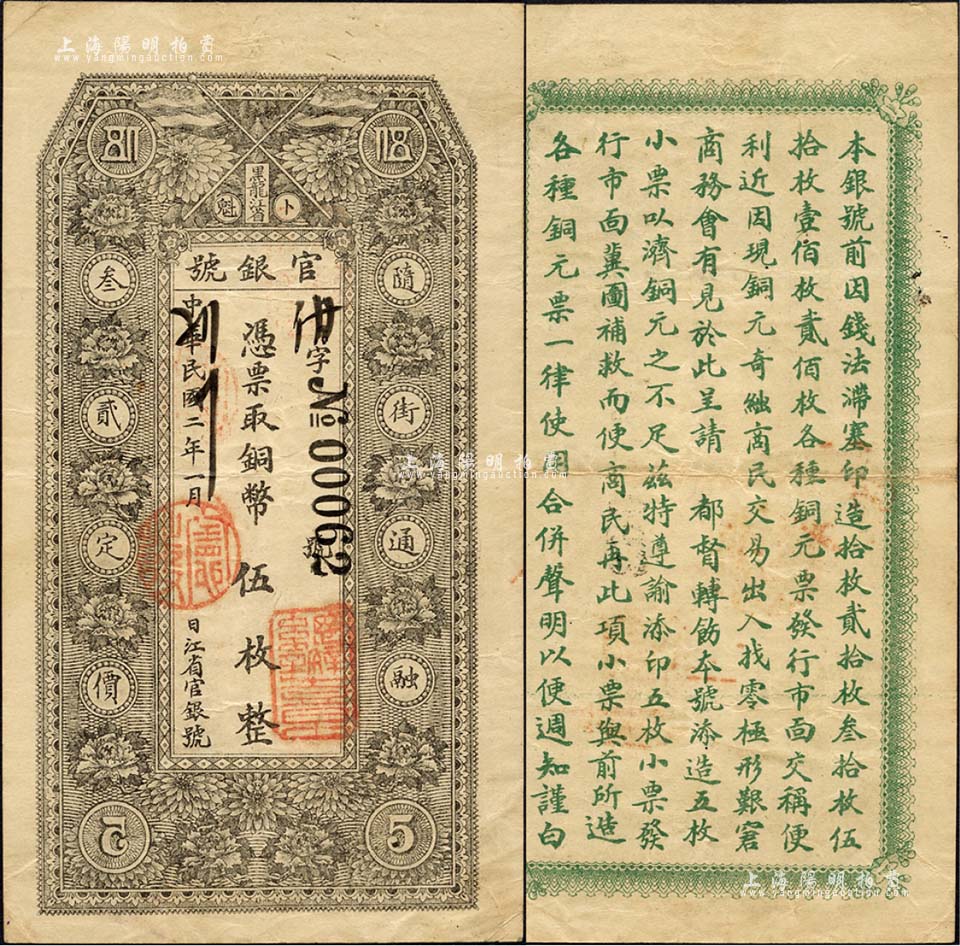 上海陽明拍賣
www.yangmingauction.com
黑龍江省
卜
魁
官銀號
隨
街
通
融
叁
貳
定
價
字
№ 00062
號
憑票取銅幣伍枚整
中華民國二年一月
日江省官銀號
5
5
本銀號前因錢法滯塞印造拾枚貳拾枚叁拾枚伍
拾枚壹佰枚貳佰枚各種銅元票發行市面交稱便
利近因現銅元奇絀商民交易出入找零極形艱窘
商務會有見於此呈請 都督轉飭本號添造五枚
小票以濟銅元之不足茲特遵諭添印五枚小票發
行市面冀圖補救而便商民再此項小票與前所造
各種銅元票一律使用合併聲明以便週知謹白
上海陽明拍賣
www.yangmingauction.com
上海陽明拍賣
www.yangmingauction.com